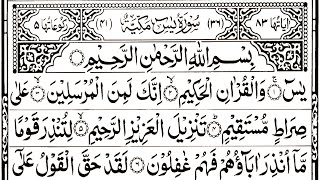 اٰیَاتُهَا ٨٣ (٣٦) سُوْرَةُ يٰسٓ مَكِّيَّةٌ (٤١) رُكُوْعَاتُهَا ٥
بِسْمِ اللّٰهِ الرَّحْمٰنِ الرَّحِيْمِ
يٰسٓ ۚ وَالْقُرْاٰنِ الْحَكِيْمِ ۙ اِنَّكَ لَمِنَ الْمُرْسَلِيْنَ ۙ عَلٰى
صِرَاطٍ مُّسْتَقِيْمٍ ؕ تَنْزِيْلَ الْعَزِيْزِ الرَّحِيْمِ ۙ لِتُنْذِرَ قَوْمًا
مَّاۤ اُنْذِرَ اٰبَآؤُهُمْ فَهُمْ غٰفِلُوْنَ لَقَدْ حَقَّ الْقَوْلُ عَلٰۤى